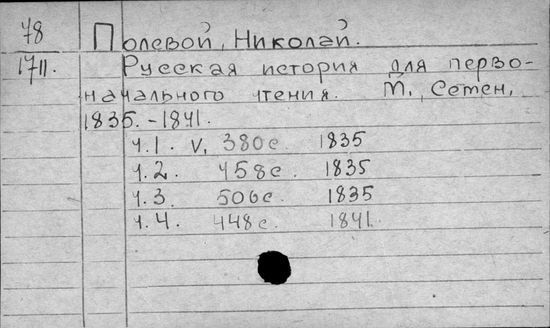 78
1711.
Полевой, Николай.
Русская история для перво-
начального чтения. М., Сетен,
1835. - 1841.
ч.1. V, 380с. 1835
ч.2. 458с. 1835
ч.3. 506с. 1835
ч.4. 448с. 1841.